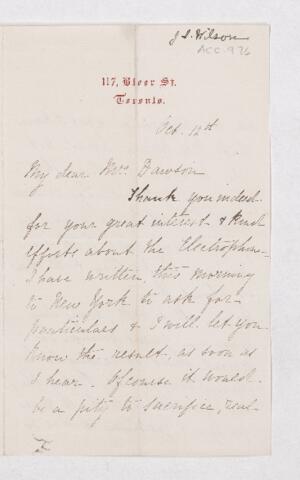 J. S. Wilson
ACC. 976
117, Bloor St.
Toronto.
Oct. 12th
My dear Mrs Dawson
Thank you indeed
for your great interest & kind
efforts about the Electrophone
I have written this morning
to New York to ask for
particulars & I will let you
know the result, as soon as
I hear. Of course it would
be a pity to sacrifice, real